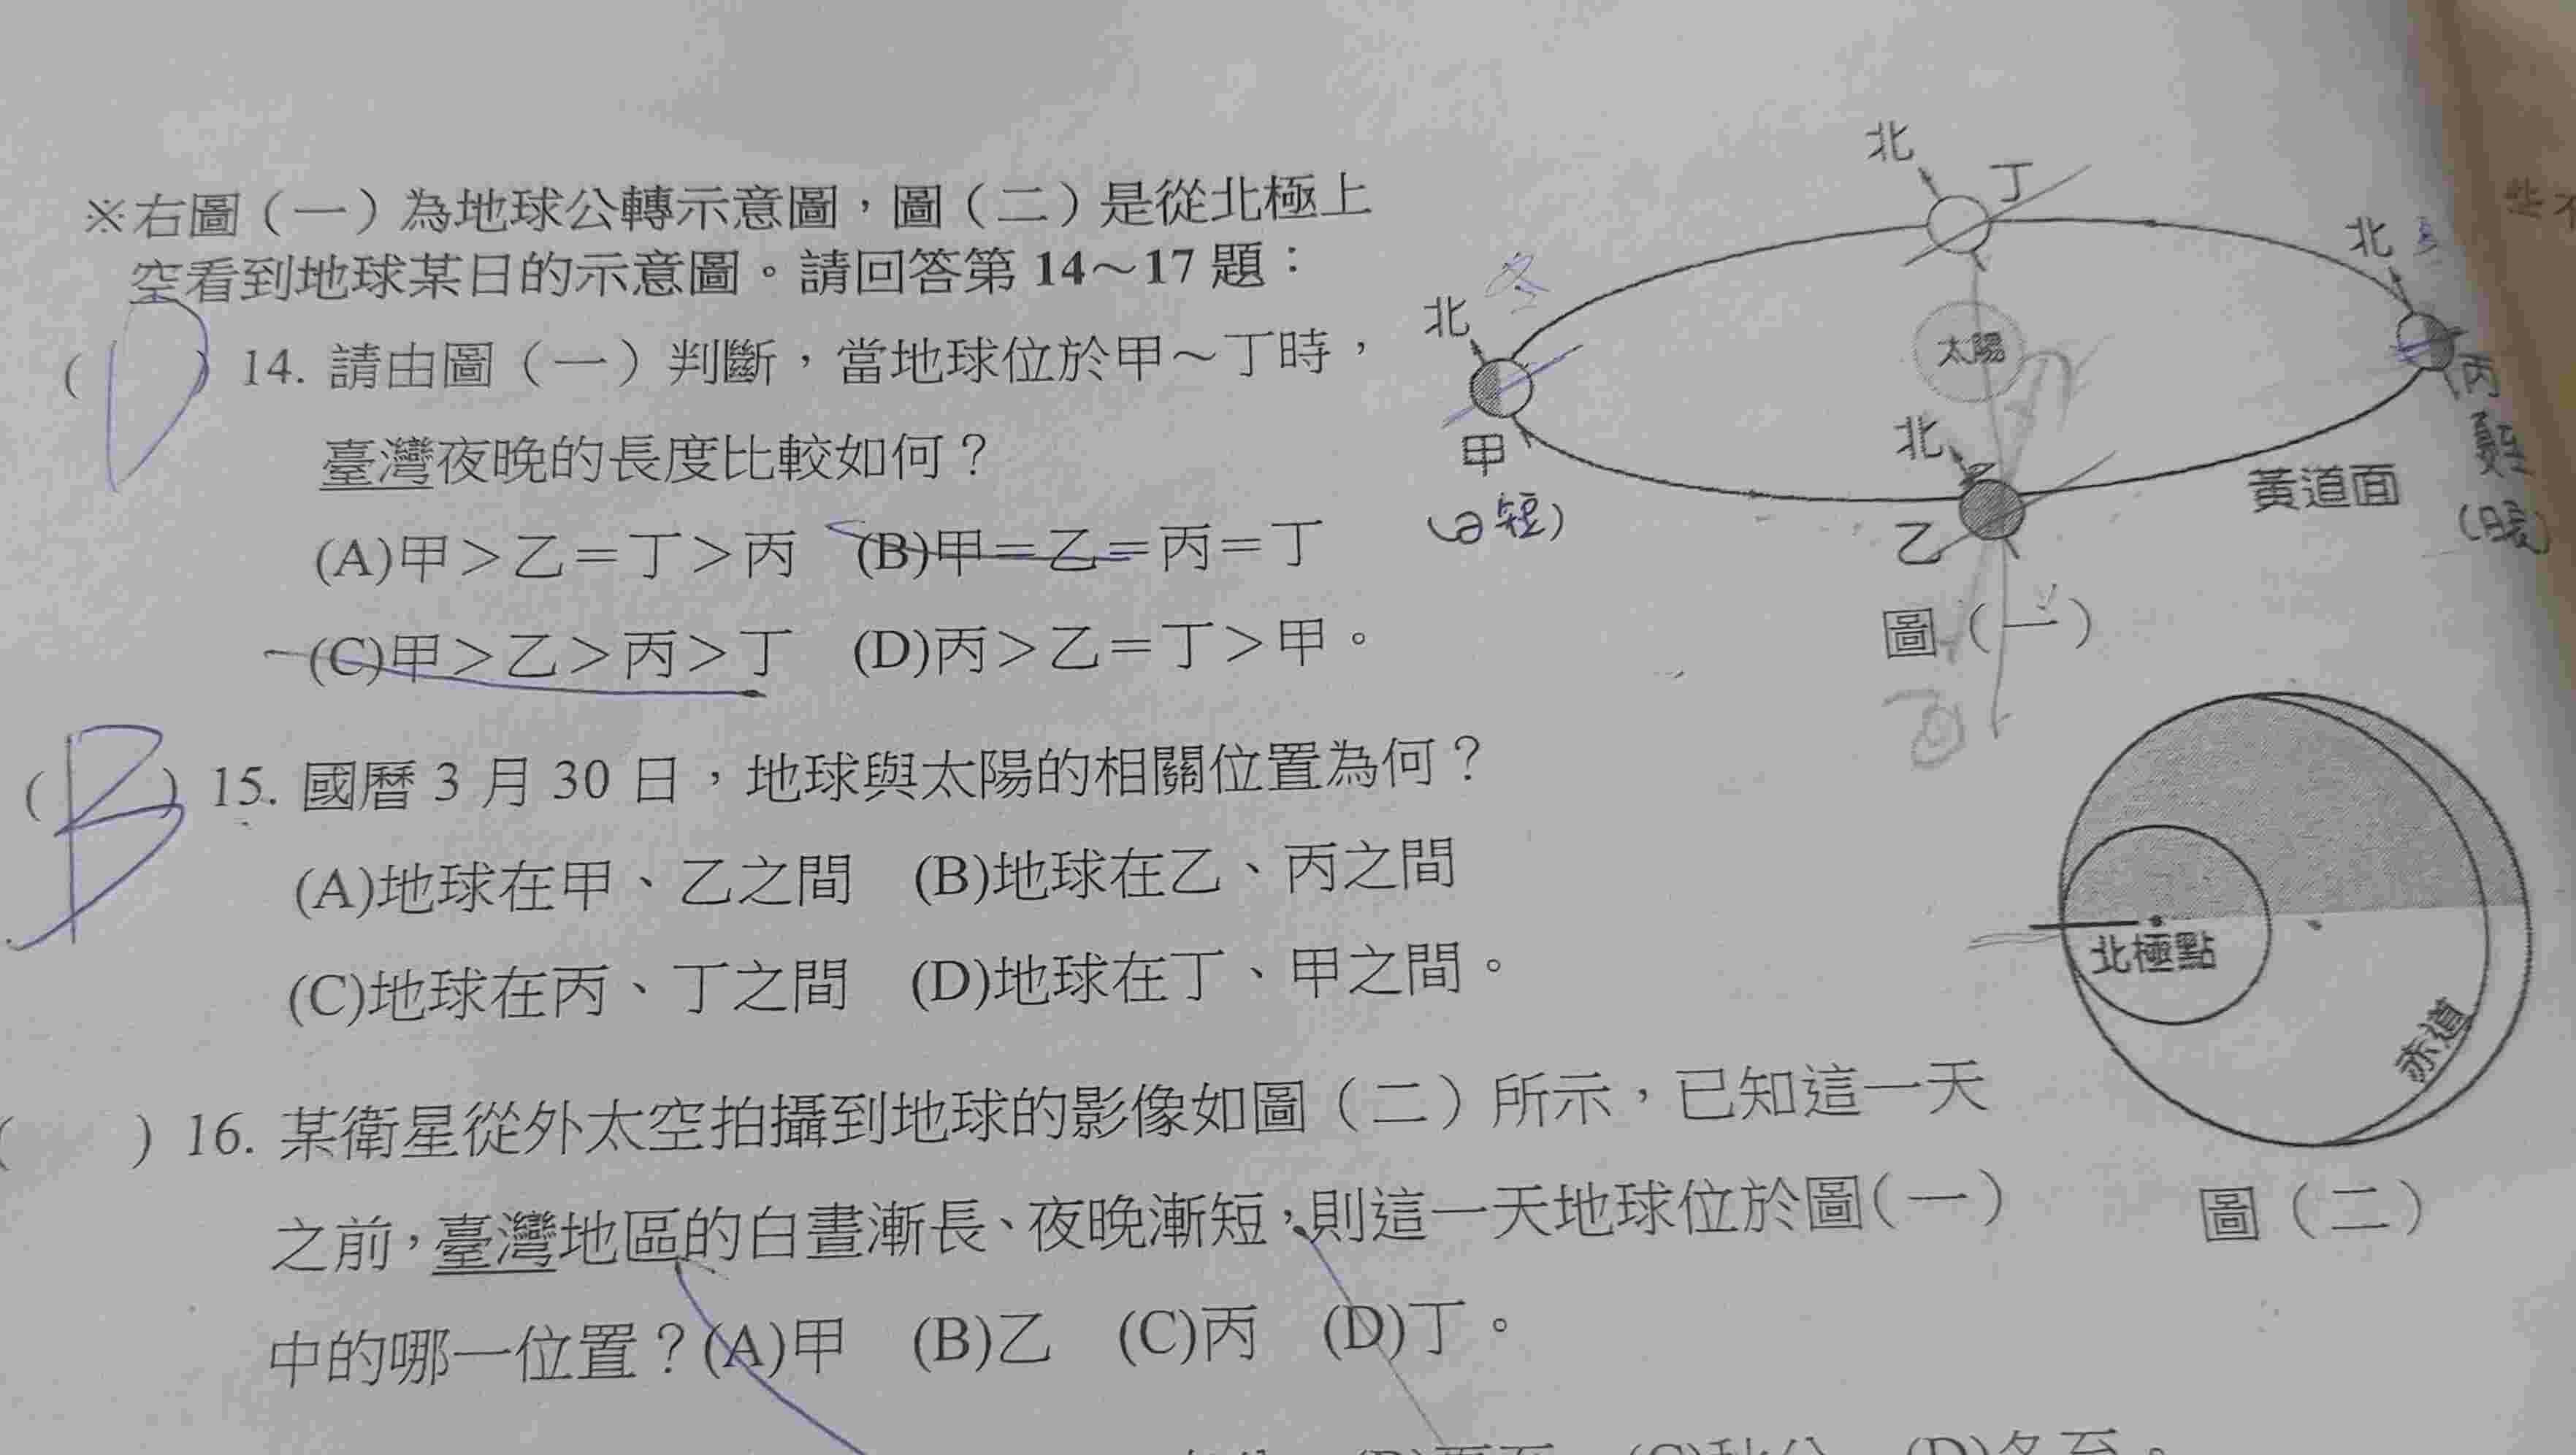 ※右圖（一）為地球公轉示意圖，圖（二）是從北極上
空看到地球某日的示意圖。請回答第 14～17 題：
(D) 14. 請由圖（一）判斷，當地球位於甲～丁時，
臺灣夜晚的長度比較如何？
(A)甲＞乙＝丁＞丙 (B)甲＝乙＝丙＝丁
(C)甲＞乙＞丙＞丁 (D)丙＞乙＝丁＞甲。
(B) 15. 國曆 3 月 30 日，地球與太陽的相關位置為何？
(A)地球在甲、乙之間 (B)地球在乙、丙之間
(C)地球在丙、丁之間 (D)地球在丁、甲之間。
( ) 16. 某衛星從外太空拍攝到地球的影像如圖（二）所示，已知這一天
之前，臺灣地區的白晝漸長、夜晚漸短，則這一天地球位於圖（一）
中的哪一位置？(A)甲 (B)乙 (C)丙 (D)丁。
北
丁
北
冬
北
太陽
丙
夏至
甲
(日短)
北
乙
黃道面
(日長)
圖（一）
北極點
赤道
圖（二）